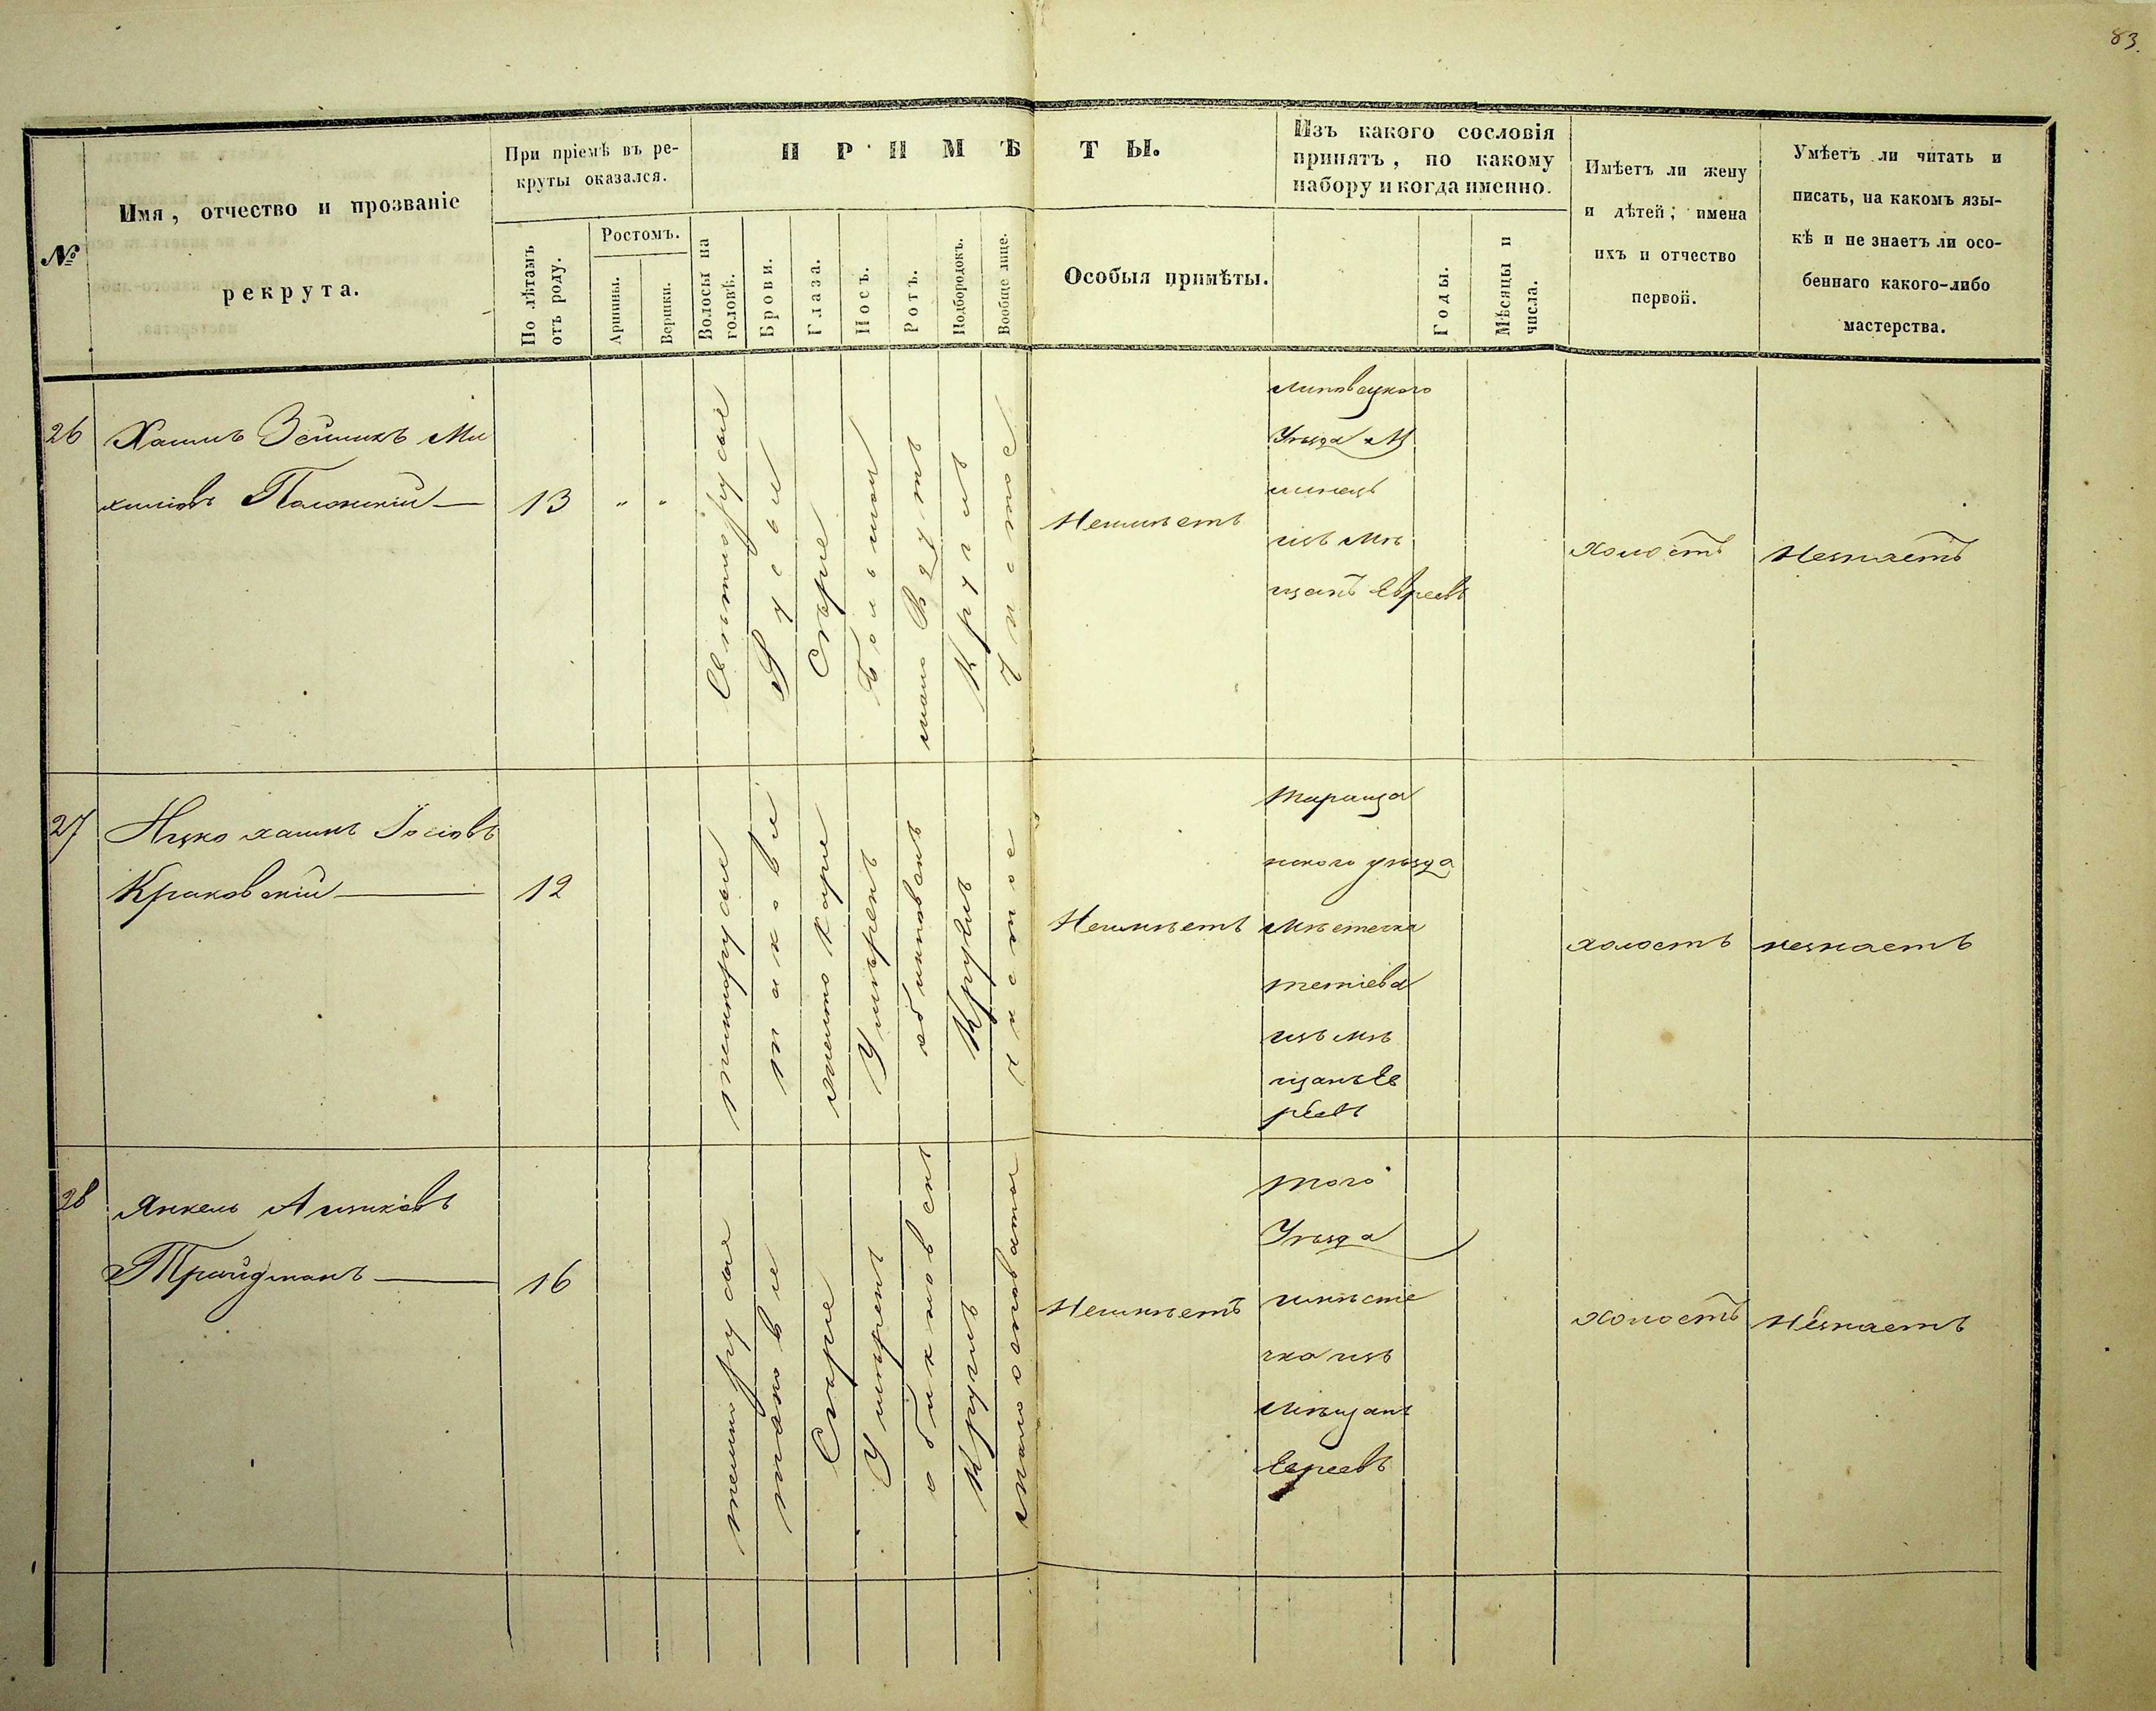 83.
№
Имя, отчество и прозваніе
рекрута.
При пріемѣ въ ре-
круты оказался.
По лѣтамъ
отъ роду.
Ростомъ.
Аршины.
Вершки.
ПРИМѢТЫ.
Волосы на
головѣ.
Брови.
Глаза.
Носъ.
Ротъ.
Подбородокъ.
Вообще лице.
Особыя примѣты.
Изъ какого сословія
принятъ, по какому
набору и когда именно.
Годы.
Мѣсяцы и
числа.
Имѣетъ ли жену
и дѣтей; имена
ихъ и отчество
первой.
Умѣетъ ли читать и
писать, на какомъ язы-
кѣ и не знаетъ ли осо-
беннаго какого-либо
мастерства.
26
Хаимъ Зейликъ Ми
13
" "
Светлорусые
Русыи
Сѣрые
Большои
Круглъ
Чистое
Неимѣетъ
липовецкого
Уѣзда М
изъ мѣ
щанъ Евреевъ
холостъ
Незнаетъ
27
Ицко хаимъ Іосіовъ
Краковскій
12
темнорусые
таковы
Умѣренъ
обикновенъ
Круглъ
чистое
Неимѣетъ
Тараща
нского уѣзда
Мѣстечка
тетіева
изъ мѣ
щанъ Ев
реевъ
холостъ
незнаетъ
28
Янкель Аизиковъ
Трайдманъ
16
темнорусые
таковы
Сѣрые
Умѣренъ
обикновенъ
Круглъ
Неимѣетъ
того
Уѣзда
имѣсте
чка изъ
Мѣщанъ
Евреевъ
холостъ
Незнаетъ